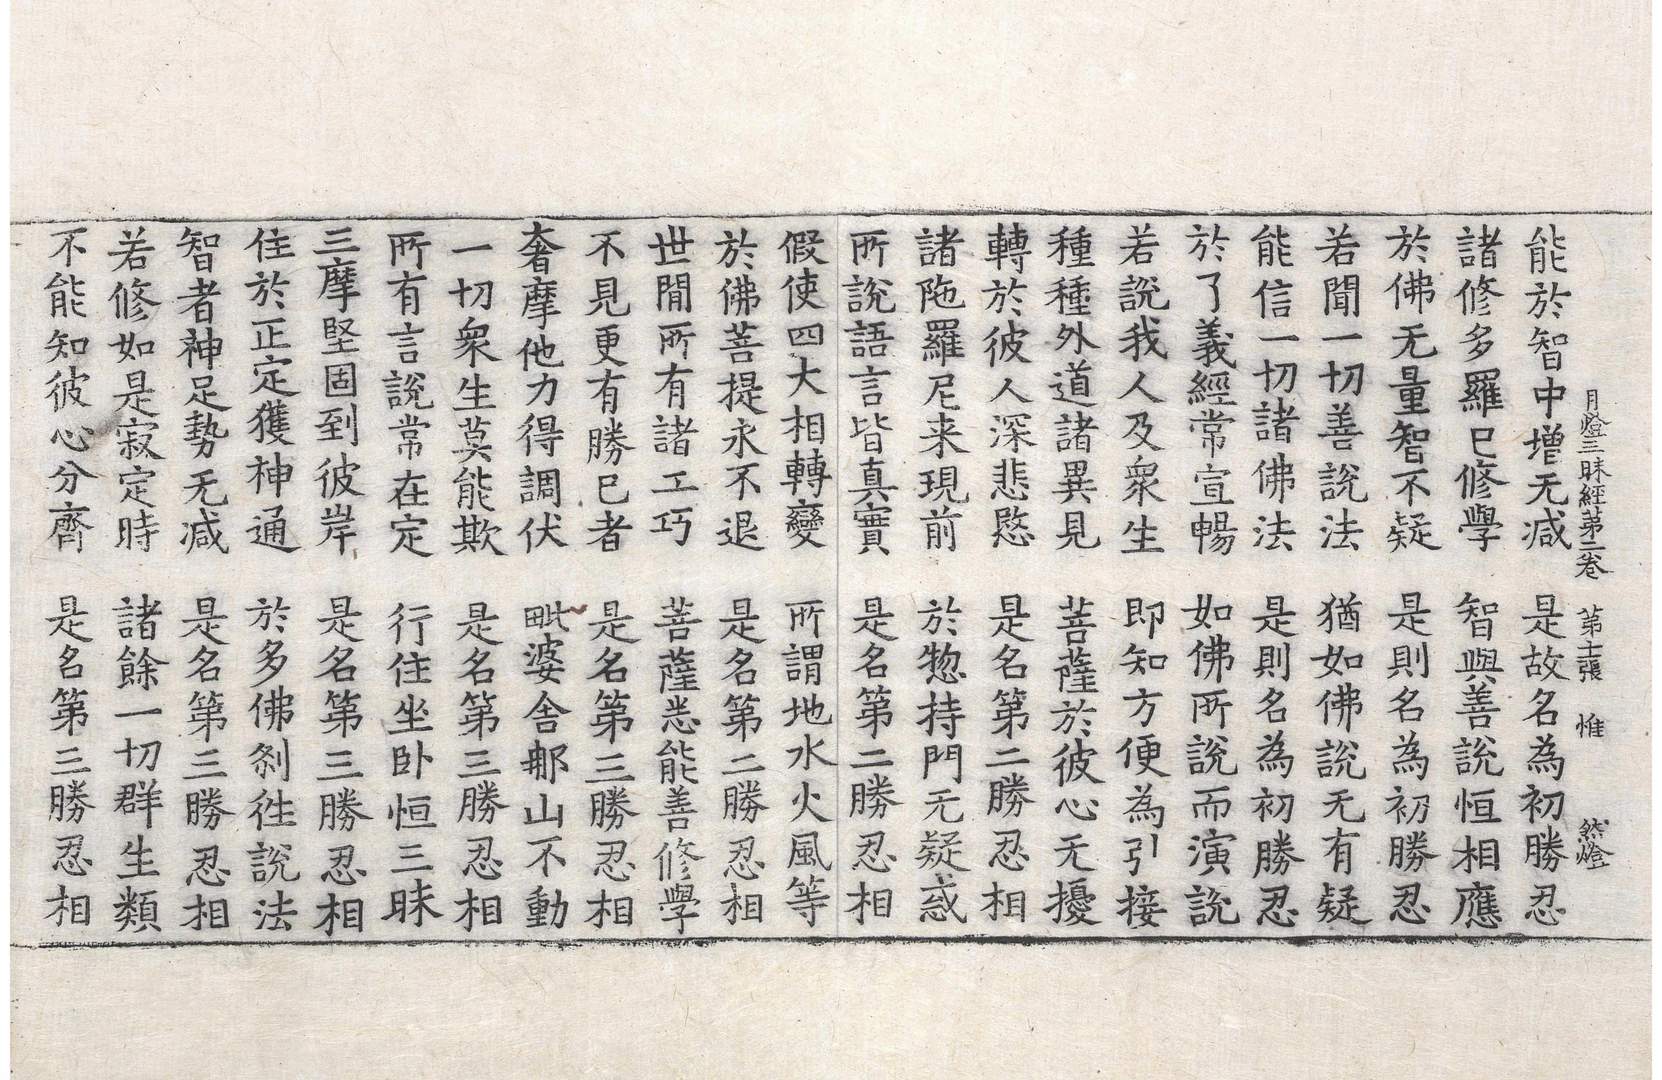 月燈三昧經第二卷　第十張　惟　然燈
能於智中增无減　是故名為初勝忍
諸修多羅已修學　智與善說恒相應
於佛无量智不疑　是則名為初勝忍
若聞一切善說法　猶如佛說无有疑
能信一切諸佛法　是則名為初勝忍
於了義經常宣暢　如佛所說而演說
若說我人及衆生　即知方便為引接
種種外道諸異見　菩薩於彼心无擾
轉於彼人深悲愍　是名第二勝忍相
諸陁羅尼来現前　於惣持門无疑惑
所說語言皆真實　是名第二勝忍相
假使四大相轉變　所謂地水火風等
於佛菩提永不退　是名第二勝忍相
世閒所有諸工巧　菩薩悉能善修學
不見更有勝已者　是名第三勝忍相
奢摩他力得調伏　毗婆舍𨚗山不動
一切衆生莫能欺　是名第三勝忍相
所有言說常在定　行住坐卧恒三昧
三摩堅固到彼岸　是名第三勝忍相
住於正定獲神通　於多佛剎往說法
智者神足勢无減　是名第三勝忍相
若修如是寂定時　諸餘一切群生類
不能知彼心分齊　是名第三勝忍相